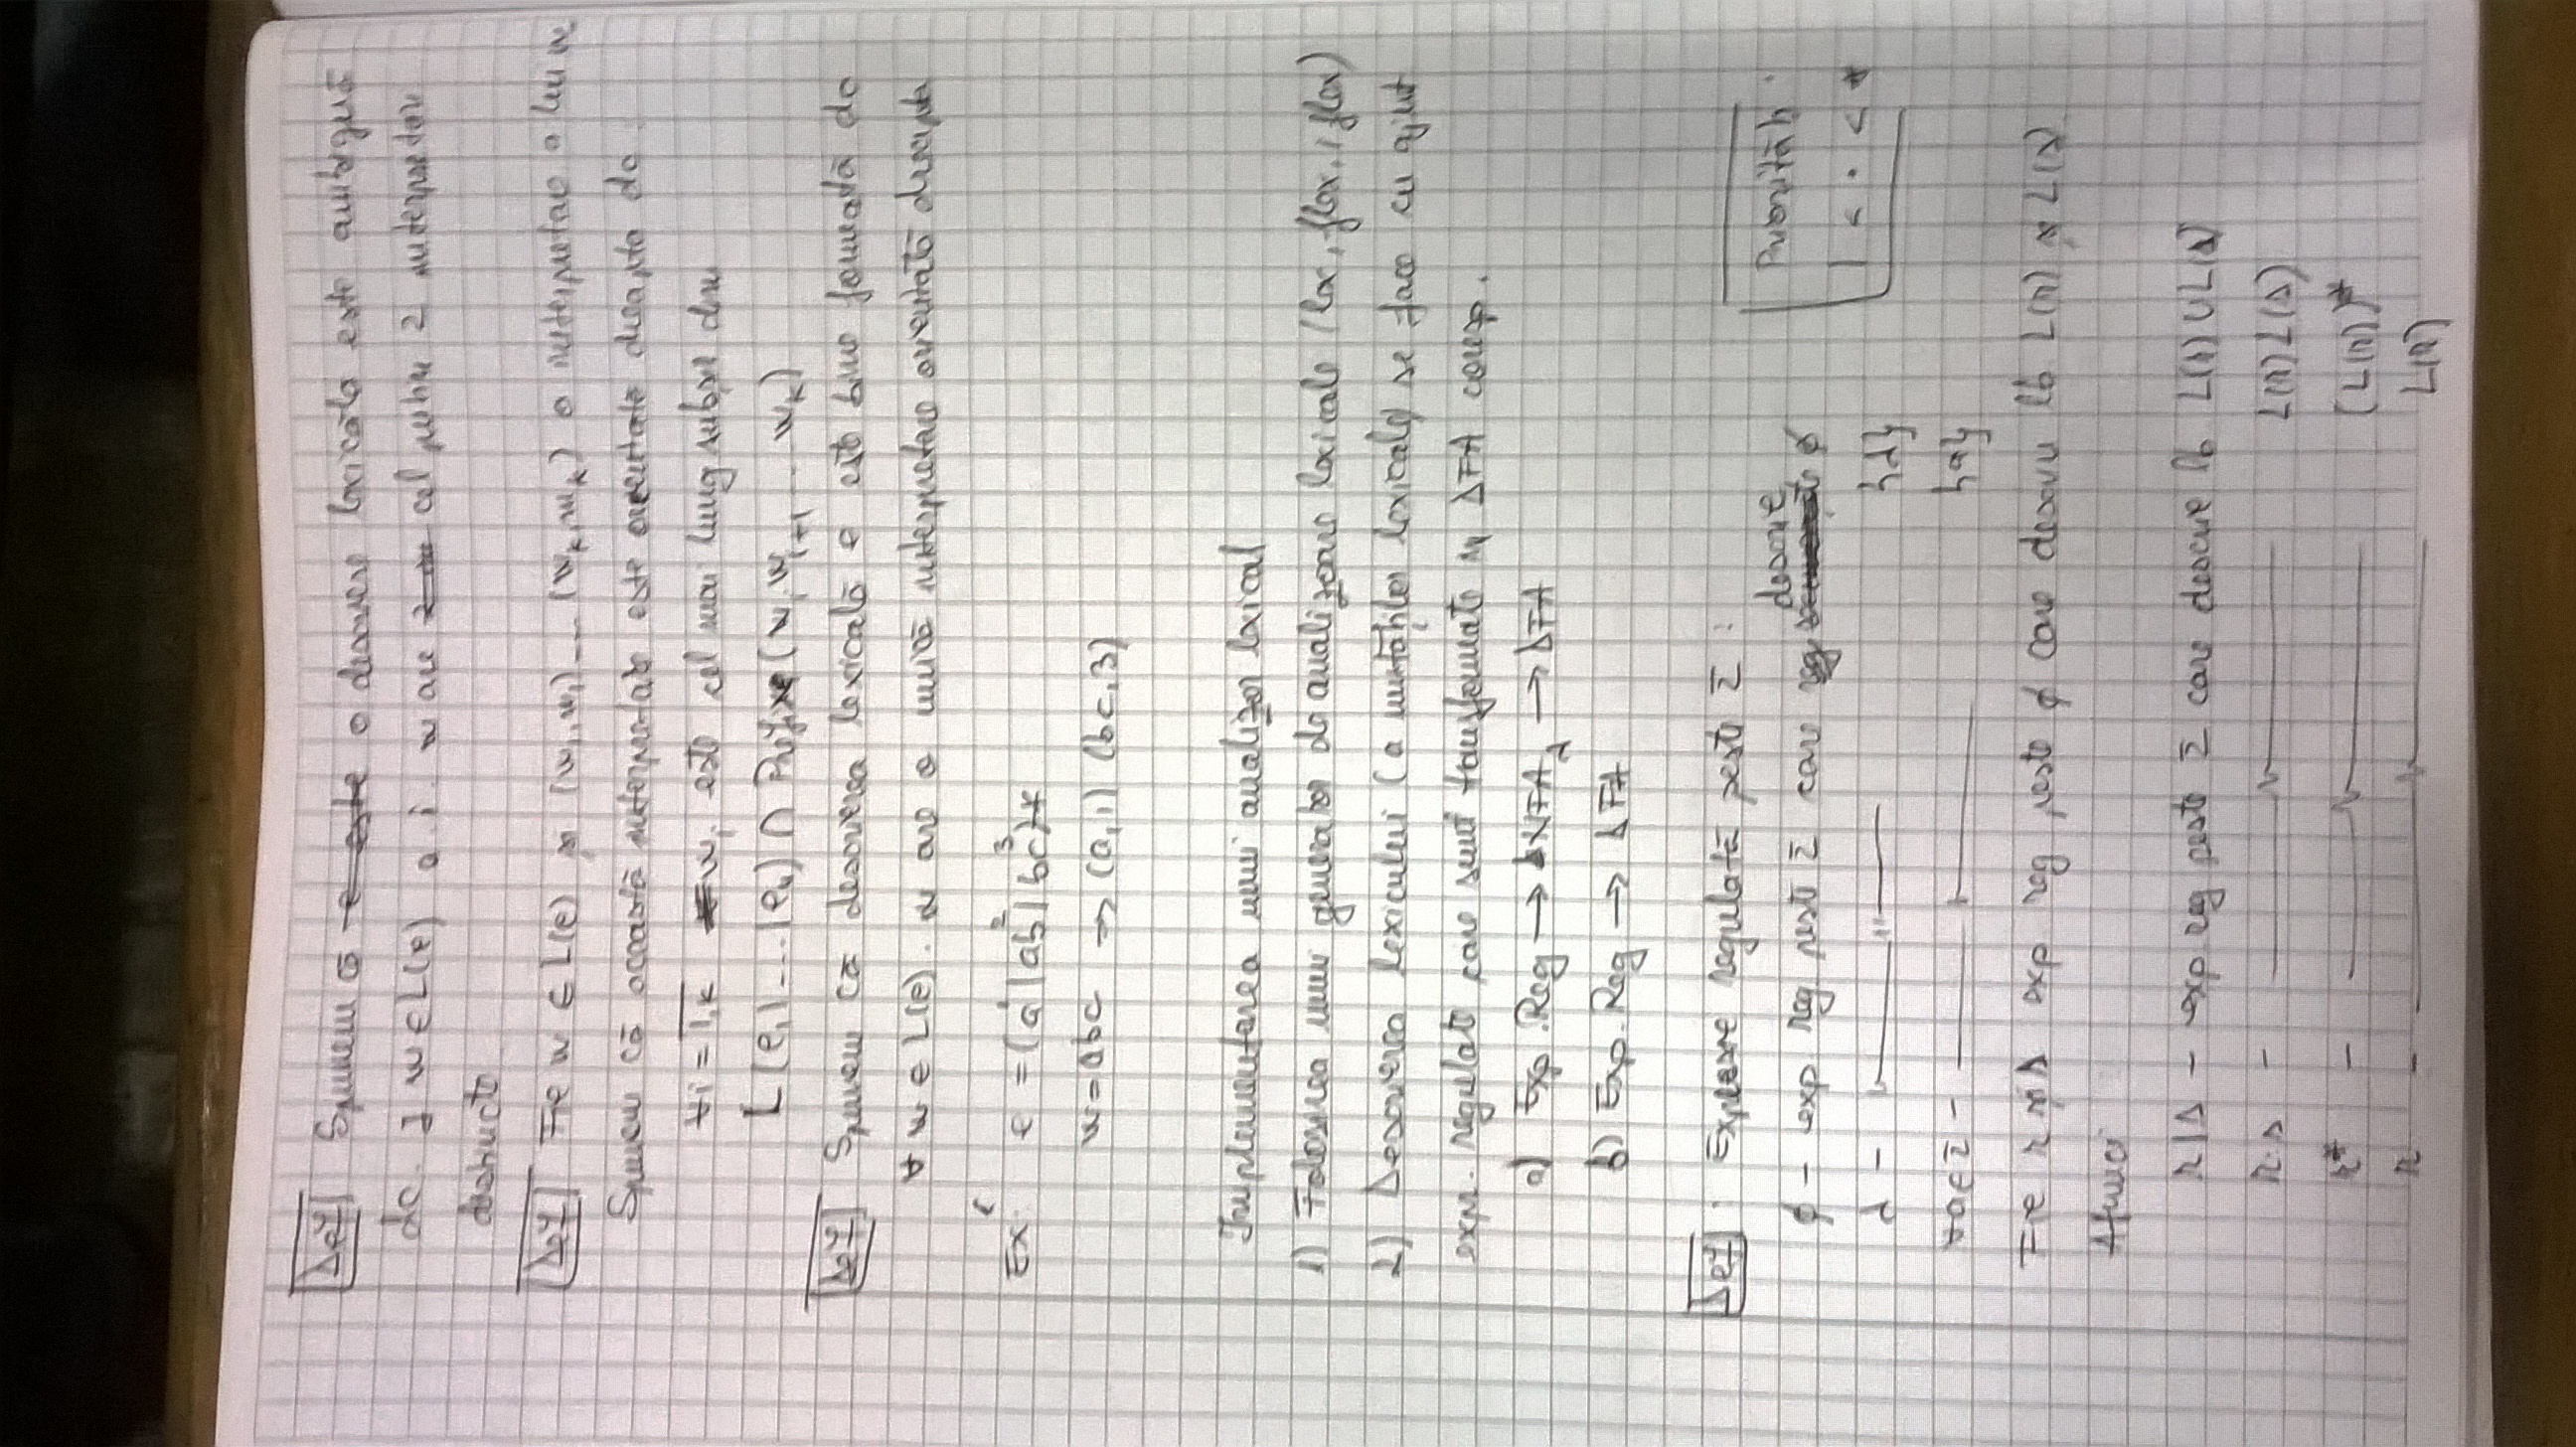 Def Spunem că o descriere lexicală este ambiguă
dc. ∃ w ∈ L(e) a.i. w are cel puțin 2 interpretări
distincte
Def Fie w ∈ L(e) și (w₁,m₁)...(wₖ,mₖ) o interpretare a lui w
Spunem că această interpretare este orientată dreapta dc.
∀i = 1,k wᵢ este cel mai lung subșir din
L(e₁|...|eₙ) ∩ Prefixe(wᵢ wᵢ₊₁ ... wₖ)
Def Spunem că descrierea lexicală e este bine formată dc
∀ w ∈ L(e). w are o unică interpretare orientată dreapta
Ex: e = (a¹|ab²|bc³)*
w = abc → (a,1) (bc,3)
Implementarea unui analizor lexical
1) Folosirea unui generator de analizoare lexicale (lex, flex, jflex)
2) Descrierea lexicului (a unităților lexicale) se face cu ajut
expr. regulate care sunt transformate în DFA coresp.
a) Exp.Reg → NFA λ → DFA
b) Exp.Reg → DFA
Def: Expresie regulată peste Σ:
descrie
∅ - exp reg peste Σ care ∅
Priorități
λ - —〃— {λ}
| < · < *
∀a∈Σ - —〃— {a}
Fie r și s exp reg peste ∅ care descriu lb L(r) și L(s)
Atunci
r|s - exp reg peste Σ care descrie lb L(r) ∪ L(s)
r·s - —〃— L(r)L(s)
r* - —〃— (L(r))*
r - —〃— L(r)